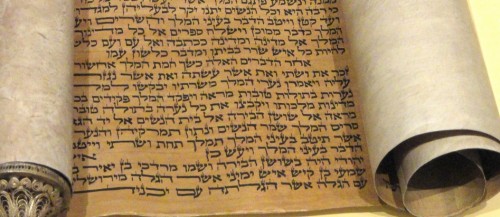 ונשמע פתגם המלך אשר
רבה היא וכל הנשים יתנו יקר לבעליהן
ועד קטן וייטב הדבר בעיני המלך והשרים
המלך כדבר ממוכן וישלח ספרים אל כל מדינות
המלך אל מדינה ומדינה ככתבה ואל עם ועם
להיות כל איש שרר בביתו ומדבר כלשון עמו
אחר הדברים האלה כשך חמת המלך אחשורוש
זכר את ושתי ואת אשר עשתה ואת אשר נגזר
עליה ויאמרו נערי המלך משרתיו יבקשו
נערות בתולות טובות מראה ויפקד המלך פקידים בכל
מדינות מלכותו ויקבצו את כל נערה בתולה טובת
מראה אל שושן הבירה אל בית הנשים אל יד הגא
סריס המלך שמר הנשים ונתון תמרקיהן והנערה
אשר תיטב בעיני המלך תמלך תחת ושתי וייטב
הדבר בעיני המלך ויעש כן איש
יהודי היה בשושן הבירה ושמו מרדכי בן יאיר בן
שמעי בן קיש איש ימיני אשר הגלה מירושלים
עם הגלה אשר הגלתה עם יכניה